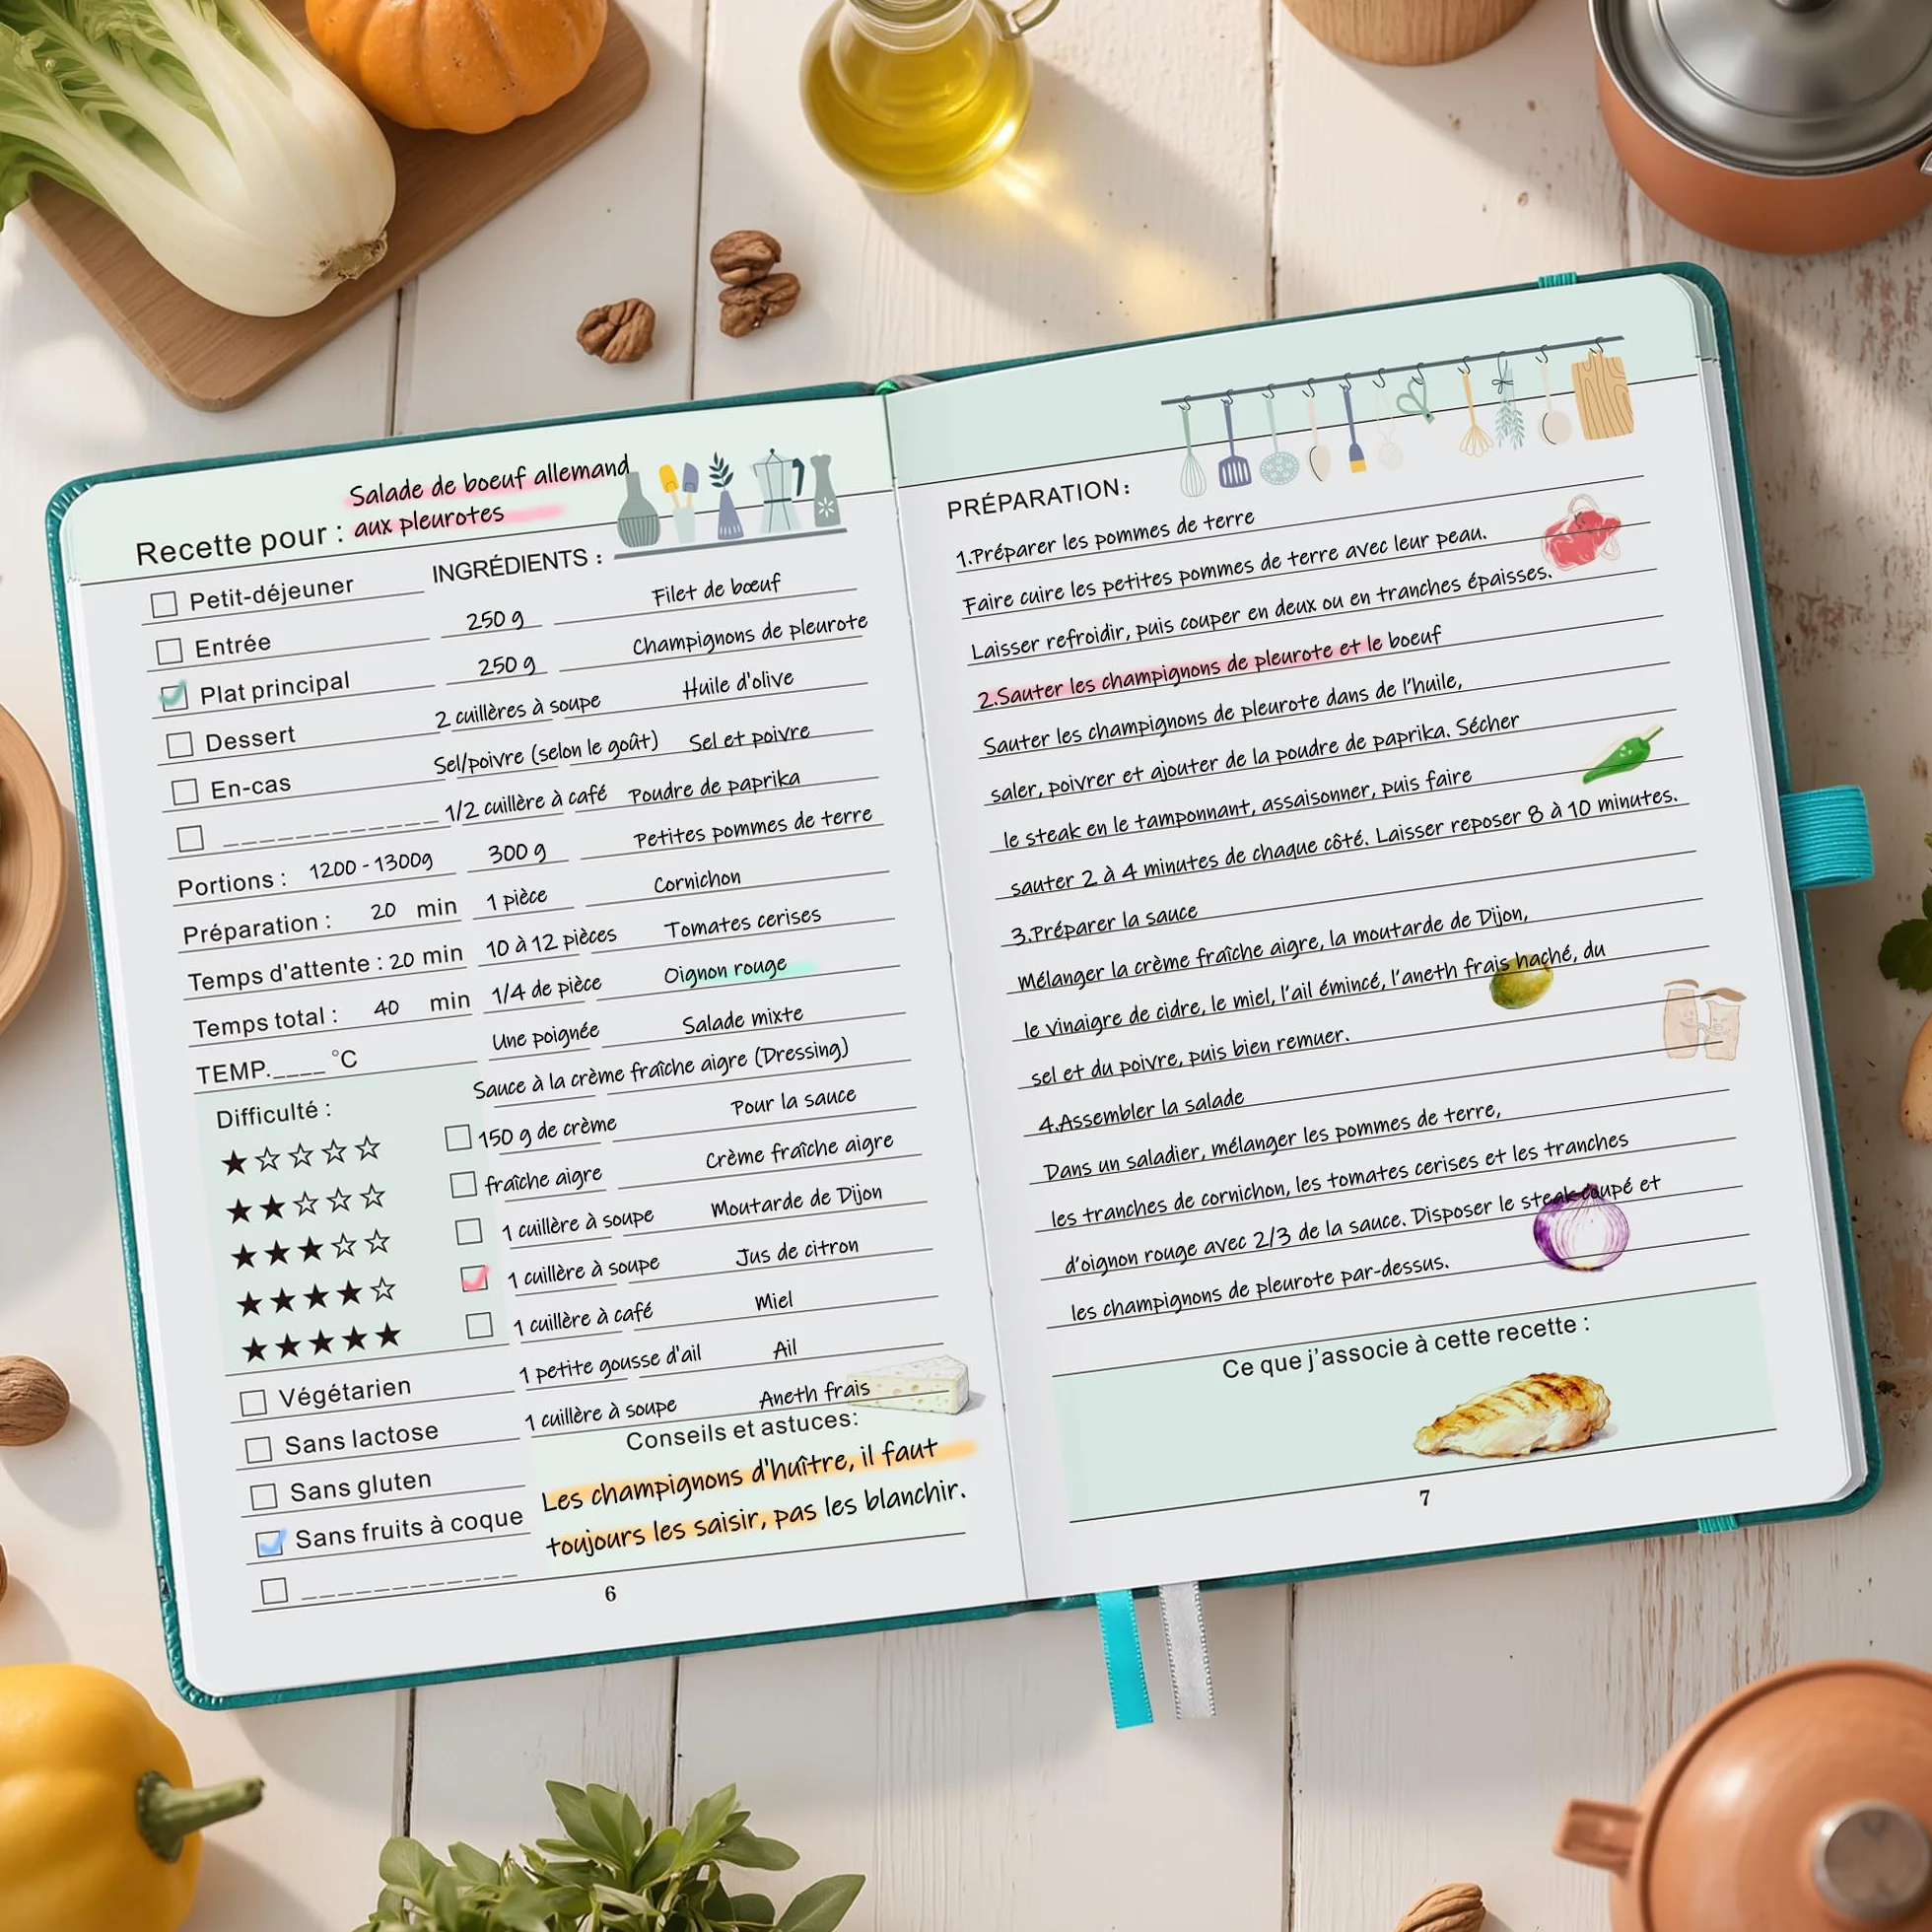 Salade de boeuf allemand
Recette pour : aux pleurotes
INGRÉDIENTS :
Petit-déjeuner
Entrée
Plat principal
Dessert
En-cas
Portions : 1200 - 1300g
Préparation : 20 min
Temps d'attente : 20 min
Temps total : 40 min
TEMP.____ °C
Difficulté :
★☆☆☆☆
★★☆☆☆
★★★☆☆
★★★★☆
★★★★★
Végétarien
Sans lactose
Sans gluten
Sans fruits à coque
250 g Filet de bœuf
250 g Champignons de pleurote
2 cuillères à soupe Huile d'olive
Sel/poivre (selon le goût) Sel et poivre
1/2 cuillère à café Poudre de paprika
300 g Petites pommes de terre
1 pièce Cornichon
10 à 12 pièces Tomates cerises
1/4 de pièce Oignon rouge
Une poignée Salade mixte
Sauce à la crème fraîche aigre (Dressing)
150 g de crème Pour la sauce
fraîche aigre Crème fraîche aigre
1 cuillère à soupe Moutarde de Dijon
1 cuillère à soupe Jus de citron
1 cuillère à café Miel
1 petite gousse d'ail Ail
1 cuillère à soupe Aneth frais
Conseils et astuces:
Les champignons d'huître, il faut
toujours les saisir, pas les blanchir.
6
PRÉPARATION:
1.Préparer les pommes de terre
Faire cuire les petites pommes de terre avec leur peau.
Laisser refroidir, puis couper en deux ou en tranches épaisses.
2.Sauter les champignons de pleurote et le boeuf
Sauter les champignons de pleurote dans de l'huile,
saler, poivrer et ajouter de la poudre de paprika. Sécher
le steak en le tamponnant, assaisonner, puis faire
sauter 2 à 4 minutes de chaque côté. Laisser reposer 8 à 10 minutes.
3.Préparer la sauce
Mélanger la crème fraîche aigre, la moutarde de Dijon,
le vinaigre de cidre, le miel, l'ail émincé, l'aneth frais haché, du
sel et du poivre, puis bien remuer.
4.Assembler la salade
Dans un saladier, mélanger les pommes de terre,
les tranches de cornichon, les tomates cerises et les tranches
d'oignon rouge avec 2/3 de la sauce. Disposer le steak coupé et
les champignons de pleurote par-dessus.
Ce que j'associe à cette recette :
7